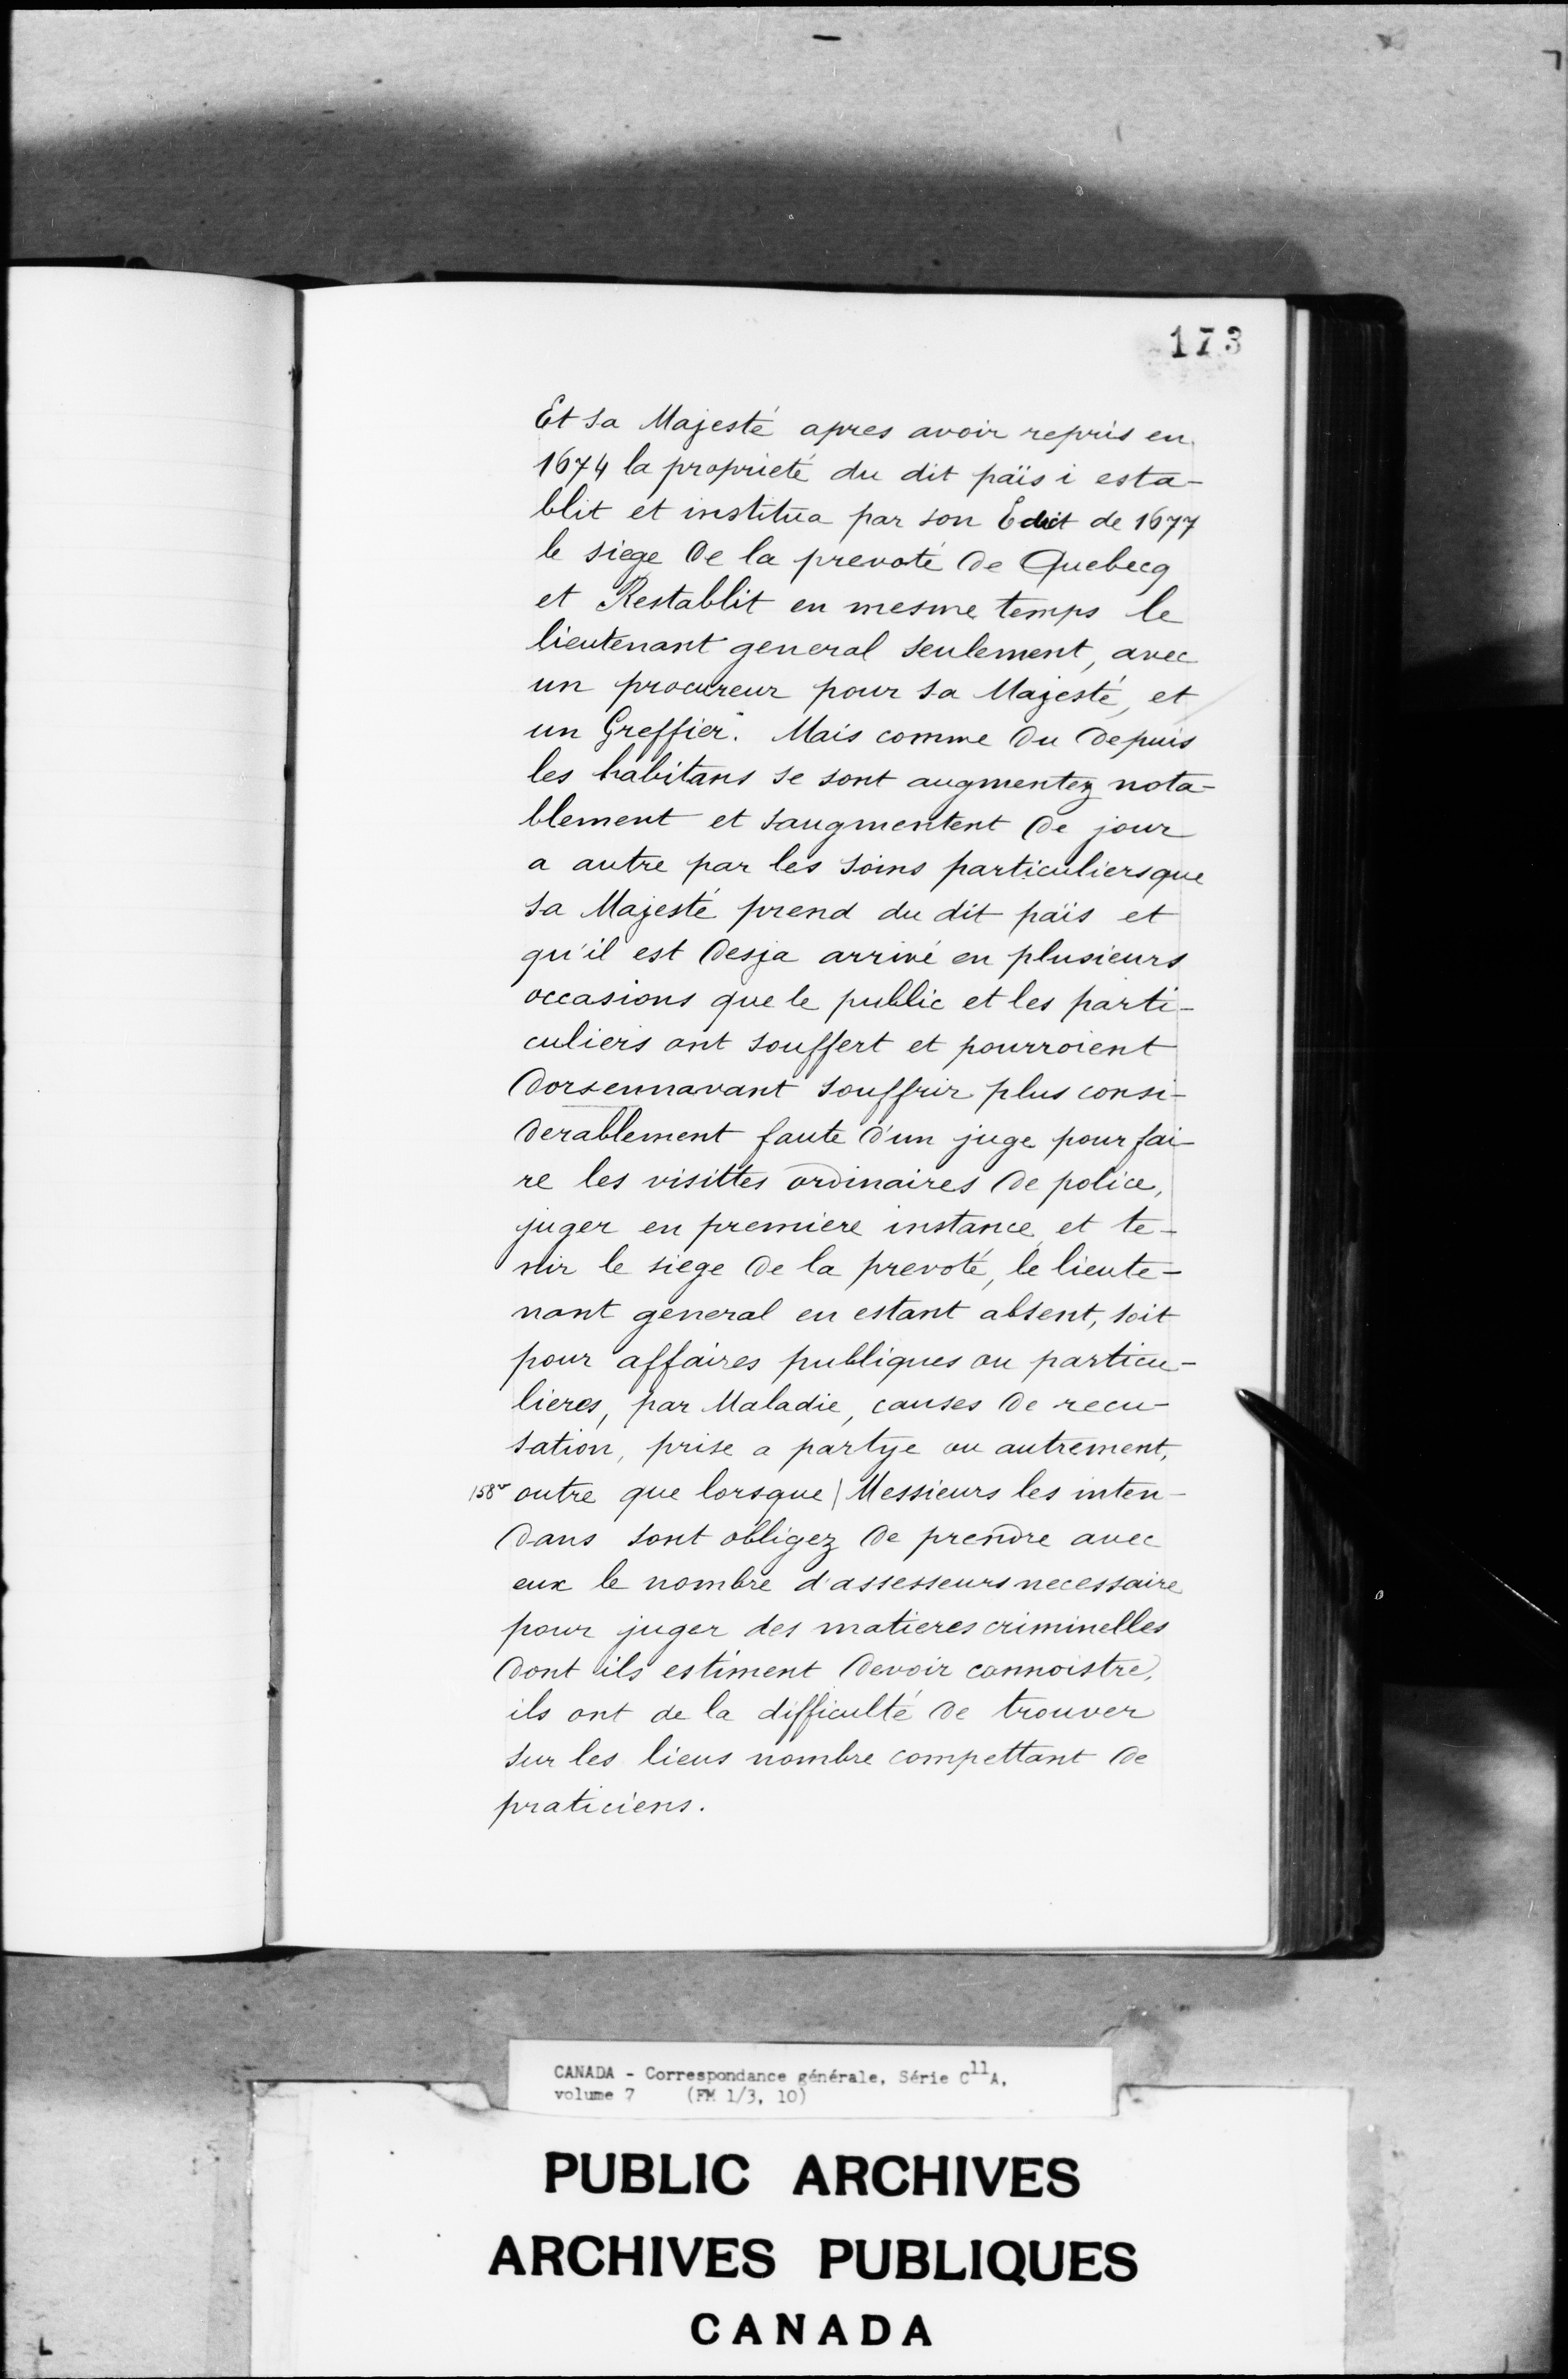 173
Et sa Majesté apres avoir repris en
1674 la proprieté du dit païs i esta-
blit et institüa par son Edict de 1677
le siege de la prevoté de Quebecq
et Restablit en mesme temps le
lieutenant general seulement, avec
un procureur pour sa Majesté, et
un Greffier. Mais comme du depuis
les habitans se sont augmentez nota-
blement et saugmentent de jour
a autre par les soins particuliers que
sa Majesté prend du dit païs et
qu'il est desja arrivé en plusieurs
occasions que le public et les parti-
culiers ont souffert et pourroient
dorsennavant souffrir plus consi-
derablement faute d'un juge pour fai-
re les visittes ordinaires de police,
juger en premiere instance, et te-
nir le siege de la prevoté, le lieute-
nant general en estant absent, soit
pour affaires publiques ou particu-
lieres, par Maladie, causes de recu-
sation, prise a partye ou autrement,
158v outre que lorsque | Messieurs les inten-
dans sont obligez de prendre avec
eux le nombre d'assesseurs necessaire
pour juger des matieres criminelles
dont ils estiment devoir connoistre,
ils ont de la difficulté de trouver
sur les lieus nombre compettant de
praticiens.
CANADA - Correspondance générale, Série C11A,
volume 7 (FM 1/3, 10)
PUBLIC ARCHIVES
ARCHIVES PUBLIQUES
CANADA
L